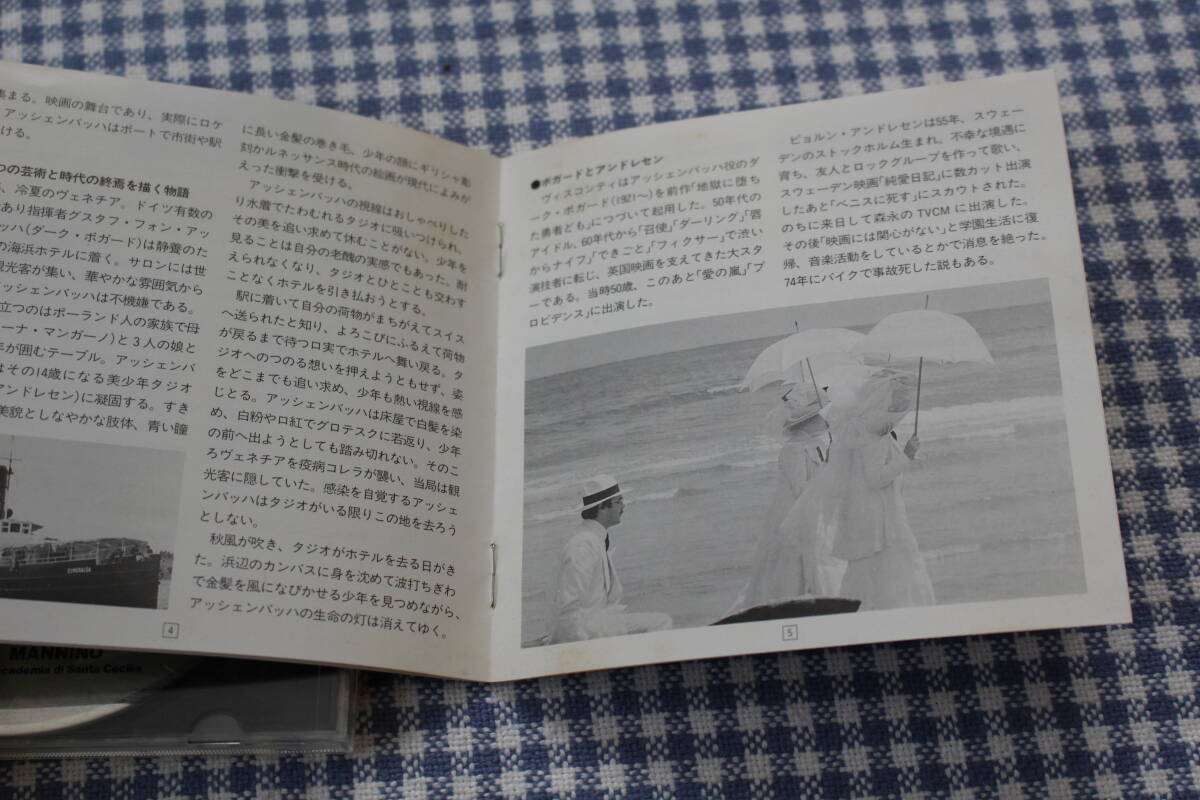 集まる。映画の舞台であり、実際にロケ
アッシェンバッハはボートで市街や駅
ける。
つの芸術と時代の終焉を描く物語
、冷夏のヴェネチア。ドイツ有数の
であり指揮者グスタフ・フォン・アッ
ッハ(ダーク・ボガード)は静養のた
の海浜ホテルに着く。サロンには世
観光客が集い、華やかな雰囲気から
アッシェンバッハは不機嫌である。
立つのはポーランド人の家族で母
ーナ・マンガーノ)と3人の娘と
年が囲むテーブル。アッシェンバ
はその14歳になる美少年タジオ
アンドレセン)に凝固する。すき
美貌としなやかな肢体、青い瞳
に長い金髪の巻き毛、少年の顔にギリシャ彫
刻かルネッサンス時代の絵画が現代によみが
えった衝撃を受ける。
アッシェンバッハの視線はおしゃべりした
り水着でたわむれるタジオに吸いつけられ、
その美を追い求めて休むことがない。少年を
見ることは自分の老醜の実感でもあった。耐
えられなくなり、タジオとひとことも交わす
ことなくホテルを引き払おうとする。
駅に着いて自分の荷物がまちがえてスイス
へ送られたと知り、よろこびにふるえて荷物
が戻るまで待つ口実でホテルへ舞い戻る。タ
ジオへのつのる想いを押えようともせず、姿
をどこまでも追い求め、少年も熱い視線を感
じとる。アッシェンバッハは床屋で白髪を染
め、白粉や口紅でグロテスクに若返り、少年
の前へ出ようとしても踏み切れない。そのこ
ろヴェネチアを疫病コレラが襲い、当局は観
光客に隠していた。感染を自覚するアッシェ
ンバッハはタジオがいる限りこの地を去ろう
としない。
秋風が吹き、タジオがホテルを去る日がき
た。浜辺のカンバスに身を沈めて波打ちぎわ
で金髪を風になびかせる少年を見つめながら、
アッシェンバッハの生命の灯は消えてゆく。
ESMERALDA
4
●ボガードとアンドレセン
ヴィスコンティはアッシェンバッハ役のダ
ーク・ボガード(1921〜)を前作「地獄に堕ち
た勇者ども」につづいて起用した。50年代の
アイドル、60年代から「召使」「ダーリング」「唇
からナイフ」「できごと」「フィクサー」で渋い
演技者に転じ、英国映画を支えてきた大スタ
ーである。当時50歳、このあと「愛の嵐」「プ
ロビデンス」に出演した。
ビョルン・アンドレセンは55年、スウェー
デンのストックホルム生まれ。不幸な境遇に
育ち、友人とロックグループを作って歌い、
スウェーデン映画「純愛日記」に数カット出演
したあと「ベニスに死す」にスカウトされた。
のちに来日して森永のTVCMに出演した。
その後「映画には関心がない」と学園生活に復
帰、音楽活動をしているとかで消息を絶った。
74年にバイクで事故死した説もある。
5
MANNINO
cademia di Santa Cecilia